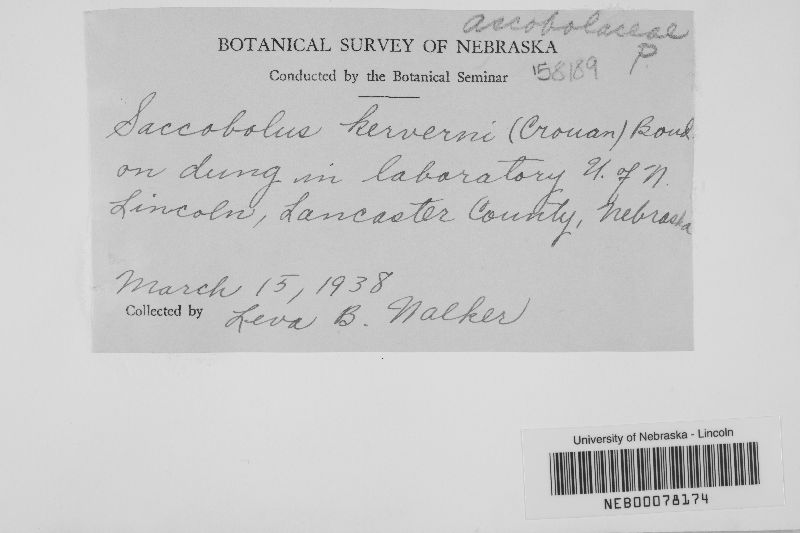 ascobolaceae
P.
BOTANICAL SURVEY OF NEBRASKA
Conducted by the Botanical Seminar
158189
Saccobolus kerverni (Crouan) Boud.
on dung in laboratory U. of N.
Lincoln, Lancaster County, Nebraska
March 15, 1938
Collected by Leva B. Walker
University of Nebraska - Lincoln
NEB00078174